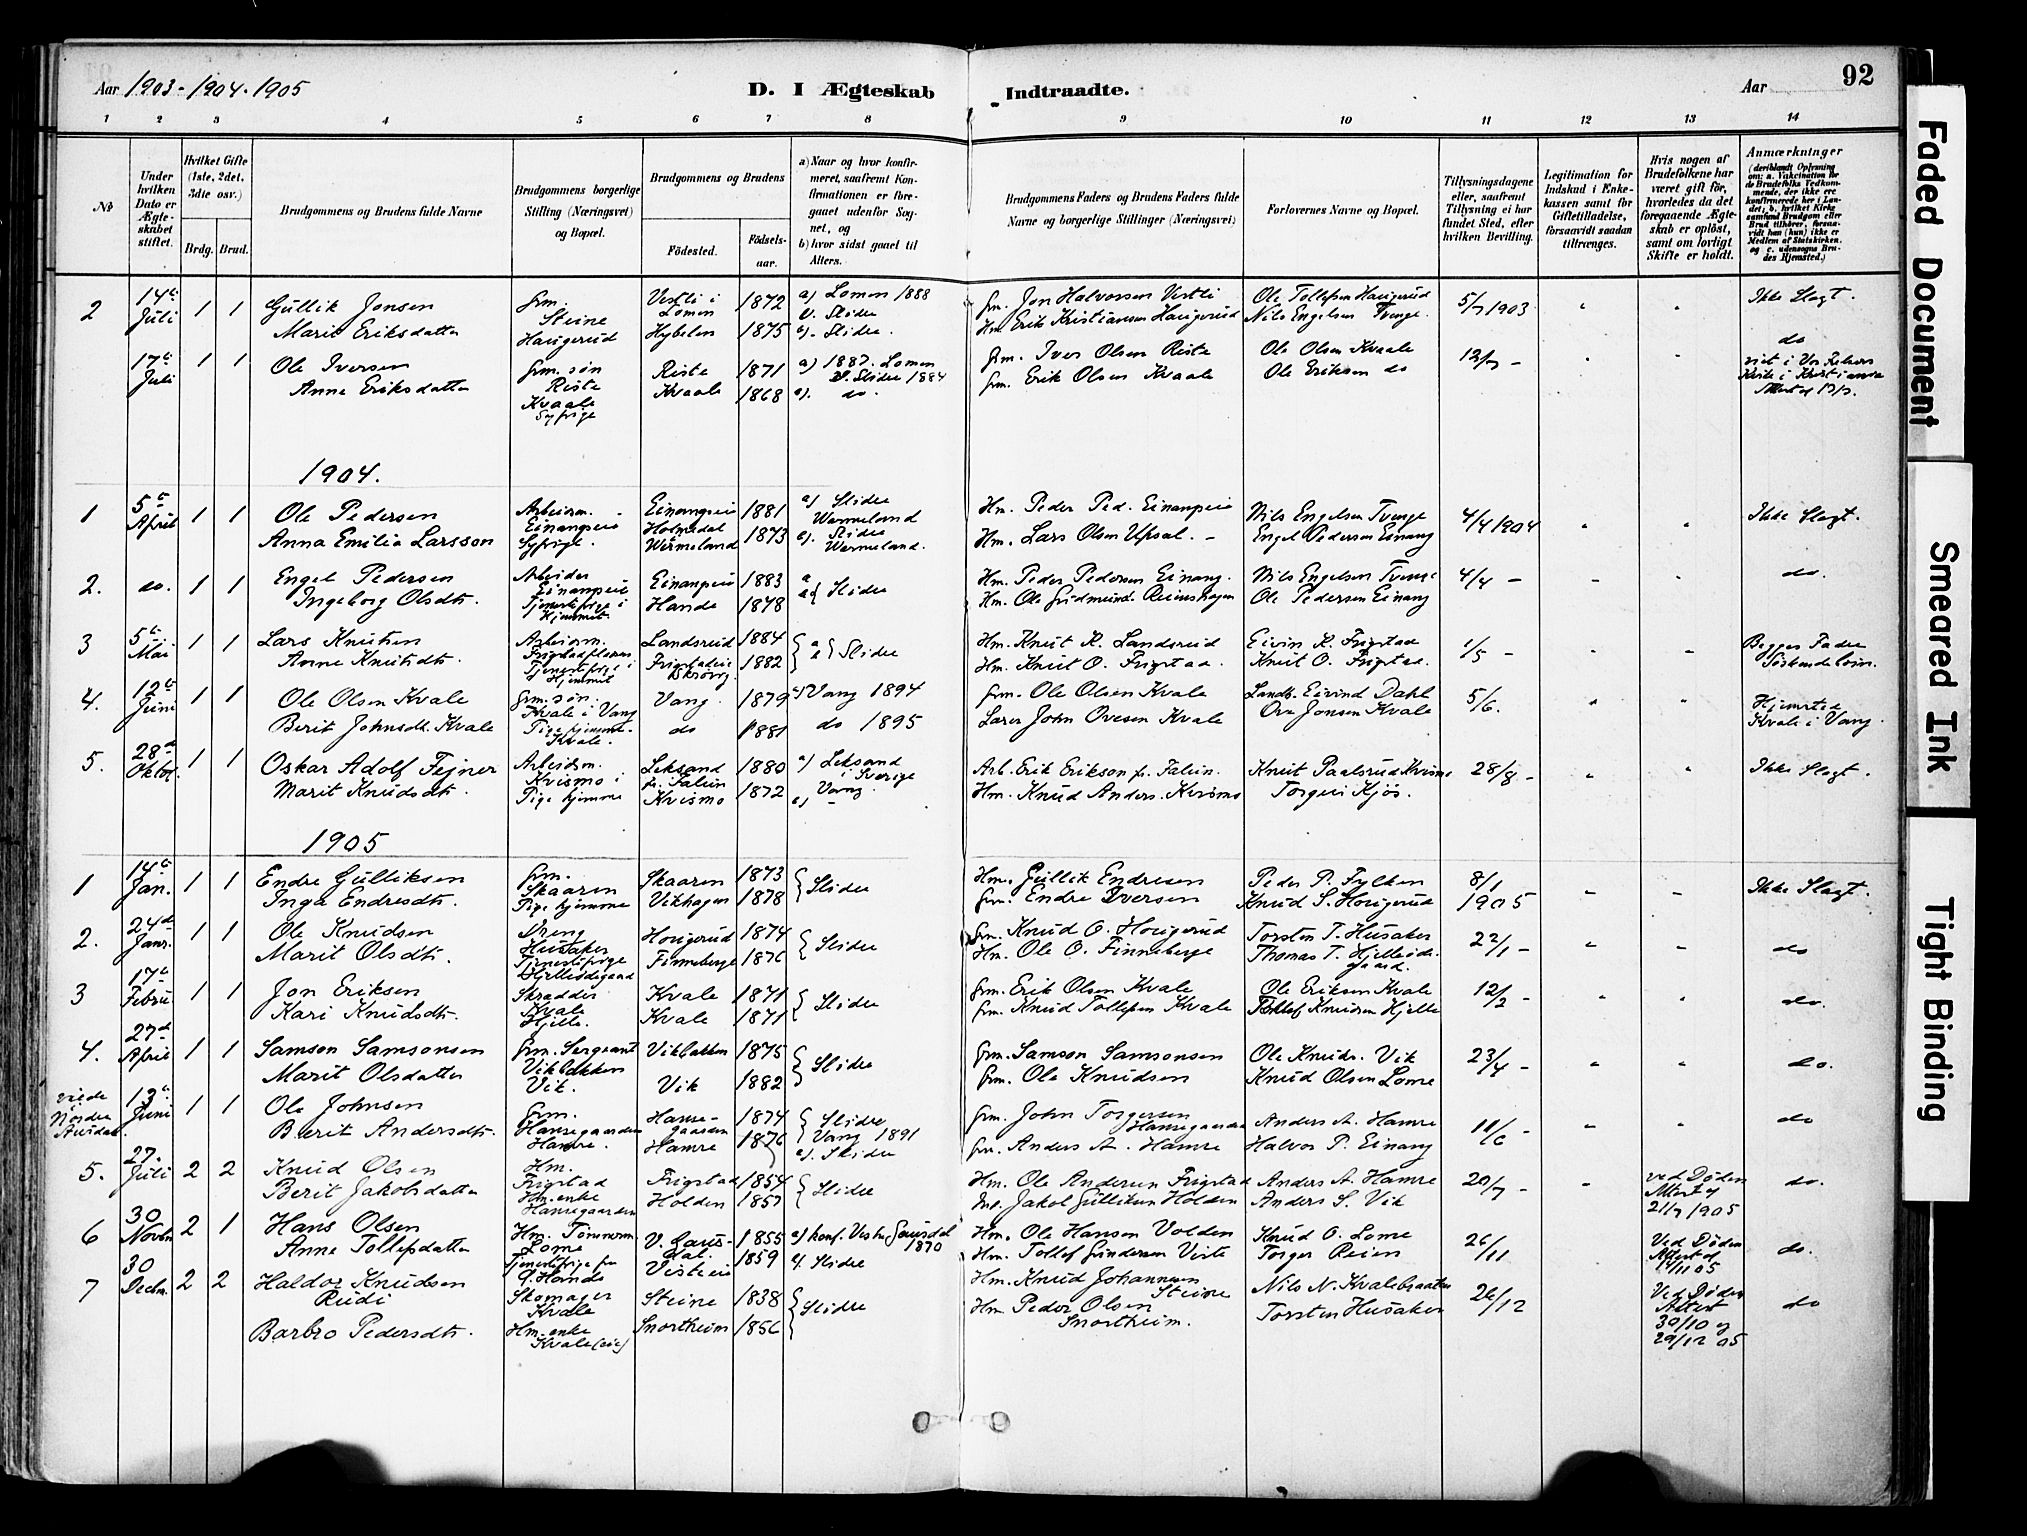 Aar 1903-1904-1905
D. I Ægteskab Indtraadte.
Aar
92
1 2 3 4 5 6 7 8 9 10 11 12 13 14
№
Under hvilken Dato er Ægteskabet stiftet.
Hvilket Gifte (1ste, 2det, 3die osv.)
Brdg. Brud.
Brudgommens og Brudens fulde Navne
Brudgommens borgerlige Stilling (Næringsvei) og Bopæl.
Brudgommens og Brudens
Födested.
Födselsaar.
a) Naar og hvor konfirmeret, saafremt Konfirmationen er foregaaet udenfor Sognet, og
b) hvor sidst gaaet til Alters.
Brudgommens Faders og Brudens Faders fulde Navne og borgerlige Stillinger (Næringsvei)
Forlovernes Navne og Bopæl.
Tillysningsdagene eller, saafremt Tillysning ei har fundet Sted, efter hvilken Bevilling.
Legitimation for Indskud i Enkekassen samt for Giftetilladelse, forsaavidt saadan tiltrænges.
Hvis nogen af Brudefolkene har været gift för, hvorledes da det foregaaende Ægteskab er oplöst, samt om lovligt Skifte er holdt.
Anmærkninger
2 14de Juli 1 1 Gullik Jonsen Grm. Steine Vestli i Lomen 1872 a) Lomen 1888 Slidre Grm. Jon Halvorsen Vestli Ole Tollefsen Haugerud 5/7 1903 Ikke Slægt.
Marit Eriksdatter Haugerud Hybelen 1875 Slidre. Hm. Erik Kristiansen Haugerud Nils Engelsen Tvenge.
17de Juli 1 1 Ole Iversen Grm. søn Riste Riste 1871 a) 1887. Lomen Slidre 1884 Grm. Iver Olsen Riste Ole Olsen Kvaale 12/7 - do
Anne Eriksdatter Kvaale Syfrige Kvaale 1868 do. Grm. Erik Olsen Kvaale Ole Eriksen do
1904.
1 5te April 1 1 Ole Pedersen Arbeidsm. Einangseie Einangseie 1881 a) Slidre Wermeland Hm. Peder Ped. Einangseie Nils Engelsen Tvenge 4/4 1904 Ikke Slægt.
Anna Emilia Larsson Syfrige. Wermeland 1873 Slidre Wermeland. Hm. Lars Olsen Upsal. - Engel Pedersen Einang
2. do. 1 1 Engel Pedersen Arbeider Einangseie Einangseie 1883 Slidre Hm. Peder Pedersen Einang. Nils Engelsen Tvenge 4/4 - do.
Ingeborg Olsdtr. Tjenestefrige i Hjemmet. Hande 1878 Hm. Ole Ole Pedersen Einang
3 5te Mai 1 1 Lars Knutsen Arbeidsm. Landsrud 1884 Slidre Hm. Knut K. Landsrud Eivin K. Frigstad 1/5 - Begges Fadre Søskendebørn.
Anne Knutsdtr. Tjenestefrige i Hjemmet 1882 Hm. Knut O. Frigstad. Knut O. Frigstad.
4. 12te Juni 1 1 Ole Olsen Kvale Grm. søn. Kvale i Vang Vang. 1879 Vang 1894 Grm. Ole Olsen Kvale Landh. Eivind Dahl 5/6. Hjemsted Kvale i Vang.
Berit Johnsdtr. Kvale Pige hjemme. Kvale. do 1881 do 1895 Lærer John Ovesen Kvale Ove Jonsen Kvale
5. 28de Oktob. 1 1 Oskar Adolf Fejner Arbeidsm. Kvismo i Leksand pr. Falun 1880 a) Leksand i Sverige Arb. Erik Erikson pr. Falun. Knut Paalsrud Kvismo 28/8 - Ikke Slægt.
Marit Knudsdtr. Pige hjemme Kvismo 1872 Vang. Hm. Knud Anders. Kvismo Torgeir Kjøs.
1905
1 14de Jan. 1 1 Endre Gulliksen Grm. Skaaren Skaaren 1873 Slidre Hm. Gullik Endresen Peder P. Fylken 8/1 1905 Ikke Slægt.
Inga Endresdtr. Pige hjemme Vikhagen 1878 Grm. Endre Iversen Knud S. Hougerud
2. 24de Janr. 1 1 Ole Knudsen Dreng Husaker Hougerud 1874 Slidre Grm. Knud O. Hougerud Torsten T. Husaker 22/1 - do
Marit Olsdtr. Tjenestefrige Finneberge 1876 Hm. Ole O. Finneberge Thomas T.
3 17de Febru 1 1 Jon Eriksen Skrædder Kvale Kvale 1871 Slidre Grm. Erik Olsen Kvale Ole Eriksen Kvale 12/2 - do.
Kari Knudsdtr. Hjelle. Kvale 1871 Grm. Knud Tollefsen Kvale Tollef Knudsen Hjelle
4. 27de April 1 1 Samson Samsonsen Grm. Sergeant Vikbakken Vikbakken 1875 Slidre Grm. Samson Samsonsen Ole Knuds. Vik 23/4 - do.
Marit Olsdatter Vik. Vik 1882 Grm. Ole Knudsen Knud Olsen Lome
viede Nordre Aurdal 13de Juni 1 1 Ole Johnsen Grm. Hamregaarden Hamregaarden 1874 Slidre Vang 1891 Grm. John Torgersen Hamregaarden Anders A. Hamre 11/6 - do
Berit Andersdtr. Hamre. Hamre 1876 Slidre Grm. Anders A. Hamre Halvor P. Einang
5. 27. Juli 2 2 Knud Olsen Hm. Frigstad Frigstad 1854 Slidre Hm. Ole Andersen Frigstad Anders A. Hamre 20/7 - ved Døden Attest af 21/7 1905 do.
Berit Jakobsdatter Hm. enke Hamregaarden Holden 1857 Jakob Gulliksen Holden Anders S. Vik
6 30 Novbr 2 1 Hans Olsen Hm. Tømmerm. Lome V. Gausdal. 1855 a) konf. Vestre Gausdal 1870 Hm. Ole Hanson Volden Knud O. Lome 26/11 Ved Døden Attest af 14/11 05 do.
Anne Tollefsdatter Tjenestefrige paa Hande Visteeie 1859 Slidre Hm. Tollef Gundersen Viste Torger Reien
7 30 Decbr. 2 2 Haldor Knudsen Rudi Skomager Kvale Steine 1838 Slidre Hm. Knud Johannesen Steine Nils N. Kvalebraaten 26/12 Ved Døden Attest 30/10 og 29/12 05 do
Barbro Pedersdtr. Hm. enke Kvale (eie) Snortheim 1856 Hm. Peder Olsen Snortheim. Torsten Husaker
Faded Document
Smeared Ink
Tight Binding